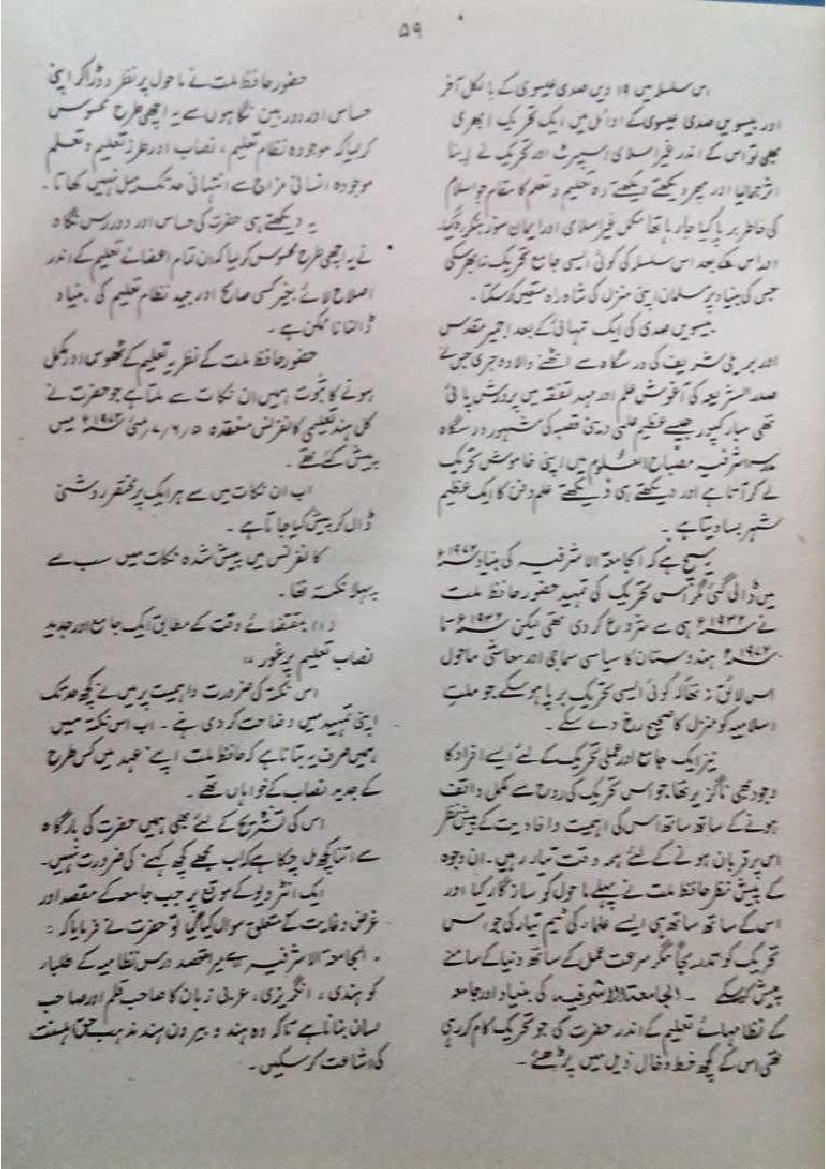 ۵۹
اس سلسلہ میں ۱۹ ویں صدی عیسوی کے بالکل آخر
اور بیسویں صدی عیسوی کے اوائل میں ایک تحریک ابھری
بھی تو اس کے اندر غیر اسلامی اسپرٹ اور تحریک نے اپنا
اثر جمالیا اور پھر دیکھتے دیکھتے وہ تعلیم و تعلم کا مقام جو اسلام
کی خاطر برپا کیا جا رہا تھا مکمل غیر اسلامی اور ایمان سوز بنکر رہ گیا
اور اس کے بعد اس سلسلہ کی کوئی ایسی جامع تحریک نہ ابھر سکی
جس کی بنیاد پر مسلمان اپنی منزل کی شاہ راہ متعین کر سکتا ۔
بیسویں صدی کی ایک تہائی کے بعد اجمیر مقدس
اور بریلی شریف کی درسگاہ سے اٹھنے والا وہ جری جس نے
صدر الشریعہ کی آغوش علم اور مہد تفقہ میں پرورش پائی
تھی مبارکپور جیسے عظیم علمی دینی قصبہ کی مشہور درسگاہ
مدرسہ اشرفیہ مصباح العلوم میں اپنی خاموش تحریک
لے کر آتا ہے اور دیکھتے ہی دیکھتے علم و فن کا ایک عظیم
شہر بسا دیتا ہے ۔
یہ سچ ہے کہ الجامعۃ الاشرفیہ کی بنیاد ۱۹۷۲ء
میں ڈالی گئی مگر اس تحریک کی تمہید حضور حافظ ملت
نے ۱۹۳۲ء ہی سے شروع کر دی تھی لیکن ۱۹۳۲ء تا
۱۹۷۲ء ہندوستان کا سیاسی سماجی اور معاشی ماحول
اس لائق نہ تھا کہ کوئی ایسی تحریک برپا ہو سکے جو ملت
اسلامیہ کو منزل کا صحیح رخ دے سکے ۔
نیز ایک جامع اور عملی تحریک کے لئے ایسے افراد کا
وجود بھی ناگزیر تھا جو اس تحریک کی روح سے مکمل واقف
ہونے کے ساتھ ساتھ اس کی اہمیت و افادیت کے پیش نظر
اس پر قربان ہونے کے لئے ہمہ وقت تیار رہیں ۔ ان وجوہ
کے پیش نظر حافظ ملت نے پہلے ماحول کو سازگار کیا اور
اس کے ساتھ ساتھ ہی ایسے علماء کی ٹیم تیار کی جو اس
تحریک کو تدریجاً مگر سرعت عمل کے ساتھ دنیا کے سامنے
پیش کر سکے ۔ الجامعۃ الاشرفیہ کی بنیاد اور جامعہ
کے نظامہائے تعلیم کے اندر حضرت کی جو تحریک کام کر رہی
تھی اس کے کچھ خط و خال ذیل میں پڑھئے ۔
حضور حافظ ملت نے ماحول پر نظر دوڑا کر اپنی
حساس اور دور بین نگاہوں سے یہ اچھی طرح محسوس
کر لیا کہ موجودہ نظام تعلیم ، نصاب اور طرز تعلیم و تعلم
موجودہ انسانی مزاج سے انتہائی حد تک میل نہیں کھاتا ۔
یہ دیکھتے ہی حضرت کی حساس اور دور رس نگاہ
نے یہ اچھی طرح محسوس کر لیا کہ ان تمام اعضائے تعلیم کے اندر
اصلاح لائے بغیر کسی صالح اور جید نظام تعلیم کی بنیاد
ڈالنا ناممکن ہے ۔
حضور حافظ ملت کے نظریہ تعلیم کے ٹھوس اور مکمل
ہونے کا ثبوت ہمیں ان نکات سے ملتا ہے جو حضرت نے
کل ہند تعلیمی کانفرنس منعقدہ ۵، ۶، ۷ مئی ۱۹۷۲ء میں
پیش کئے تھے ۔
اب ان نکات میں سے ہر ایک پر مختصر روشنی
ڈال کر پیش کیا جاتا ہے ۔
کانفرنس میں پیش شدہ نکات میں سب سے
پہلا نکتہ تھا ۔
(۱) مقتضائے وقت کے مطابق ایک جامع اور جدید
نصاب تعلیم پر غور ،،
اس نکتہ کی ضرورت و اہمیت پر میں نے کچھ حد تک
اپنی تمہید میں وضاحت کر دی ہے ۔ اب اس نکتہ میں
ہمیں صرف یہ بتانا ہے کہ حافظ ملت اپنے عہد میں کس طرح
کے جدید نصاب کے خواہاں تھے ۔
اس کی تشریح کے لئے بھی ہمیں حضرت کی بارگاہ
سے اتنا کچھ مل چکا ہے کہ اب مجھے کچھ کہنے کی ضرورت نہیں۔
ایک انٹرویو کے موقع پر جب جامعہ کے مقصد اور
غرض و غایت کے متعلق سوال کیا گیا تو حضرت نے فرمایا کہ :
" الجامعۃ الاشرفیہ سے میرا مقصد درس نظامیہ کے طلبار
کو ہندی ، انگریزی، عربی زبان کا صاحب قلم اور صاحب
لسان بنانا ہے تاکہ وہ ہند و بیرون ہند مذہب حق اہلسنت
کی اشاعت کر سکیں ۔